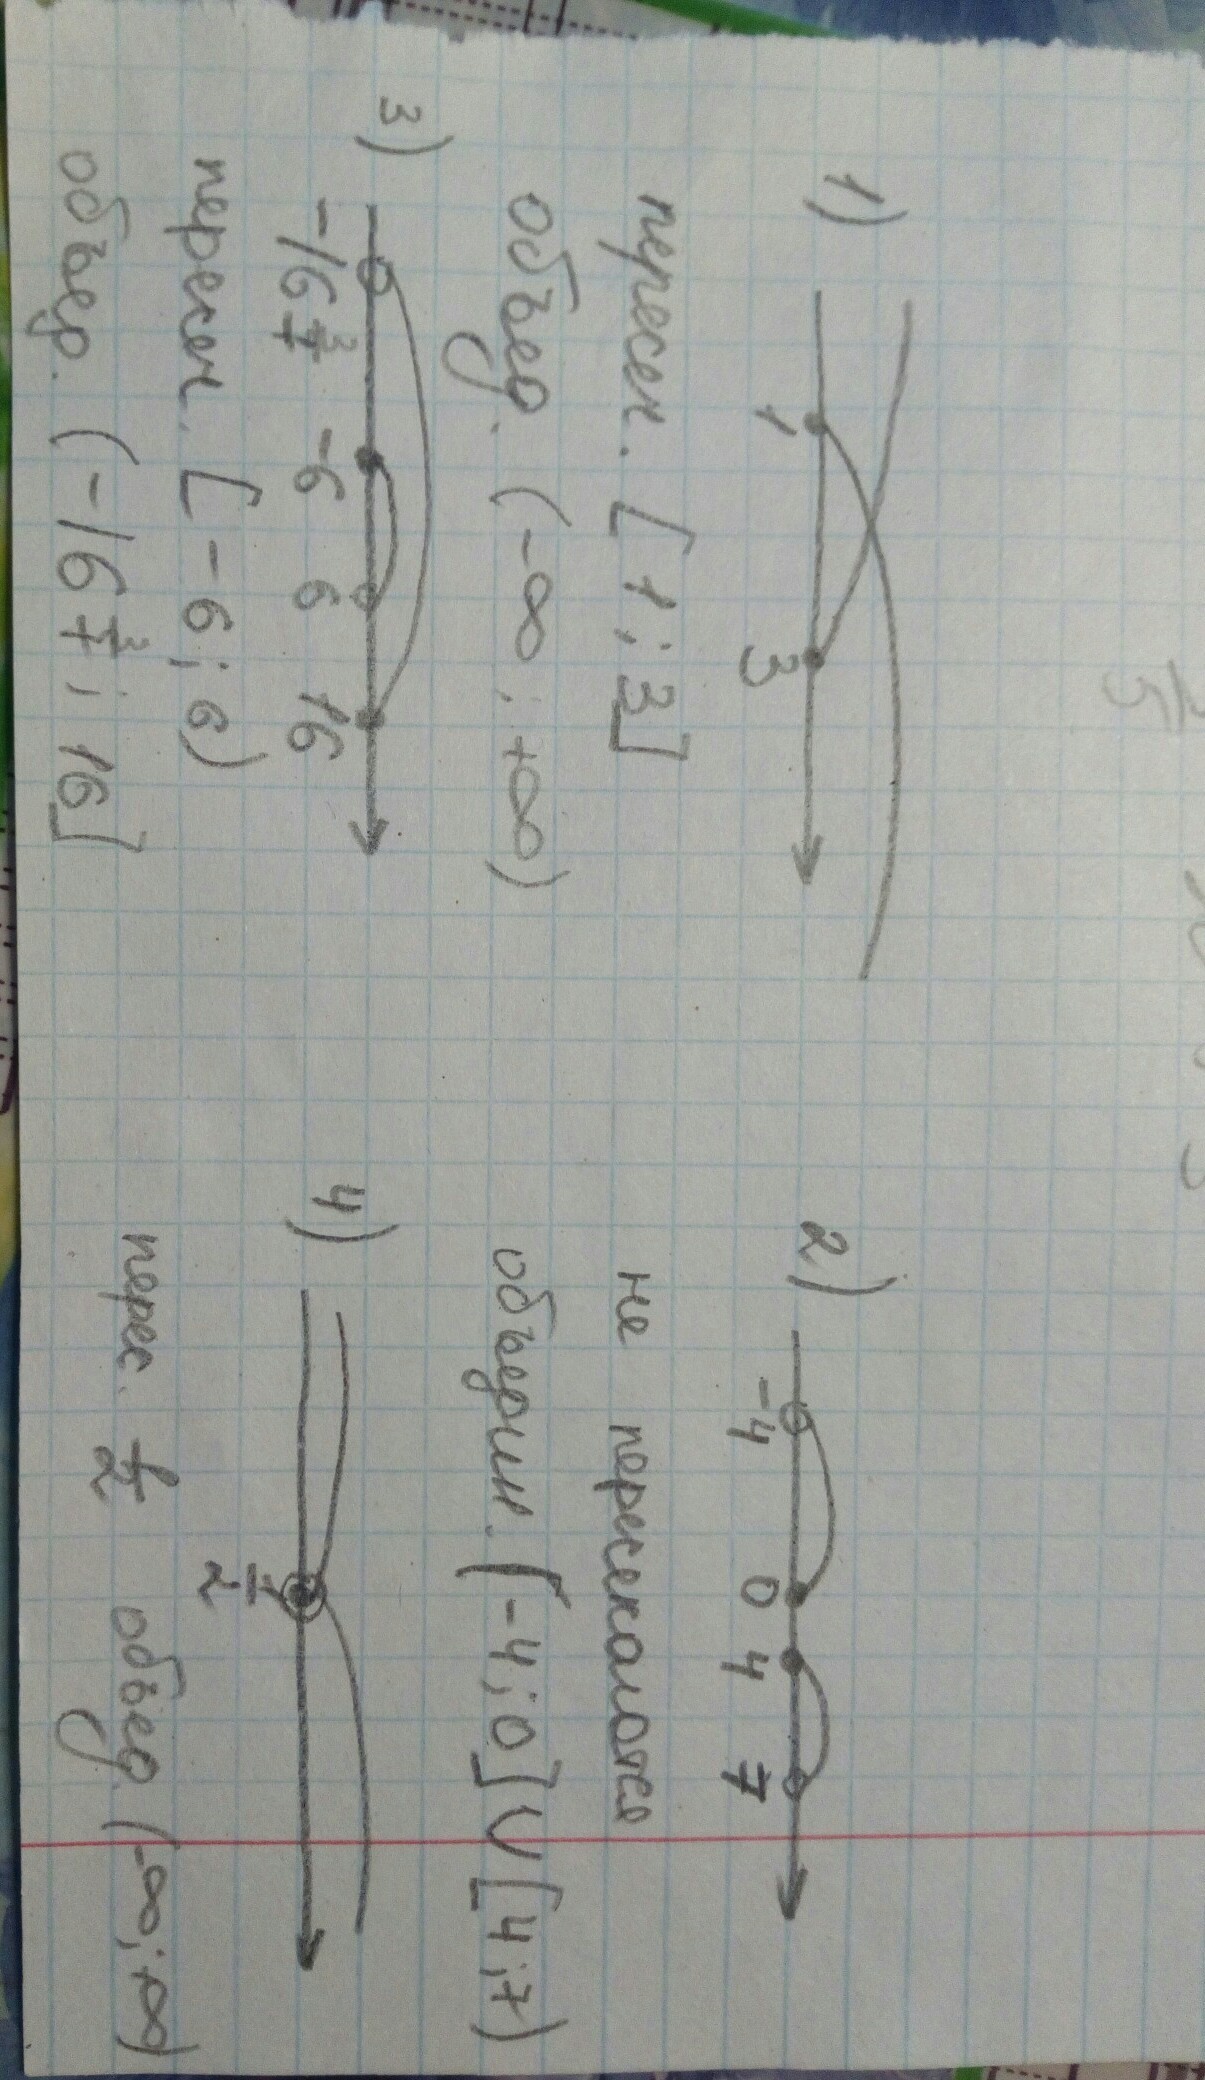 1)
1 3
пересеч. [1; 3]
объед. (-∞; +∞)
2)
-4 0 4 7
не пересекаются
объедин. (-4; 0] ∪ [4; 7)
3)
-16 3/7 -6 6 16
пересеч. [-6; 6)
объед. (-16 3/7; 16]
4)
1/2
перес. 1/2 объед. (-∞; +∞)